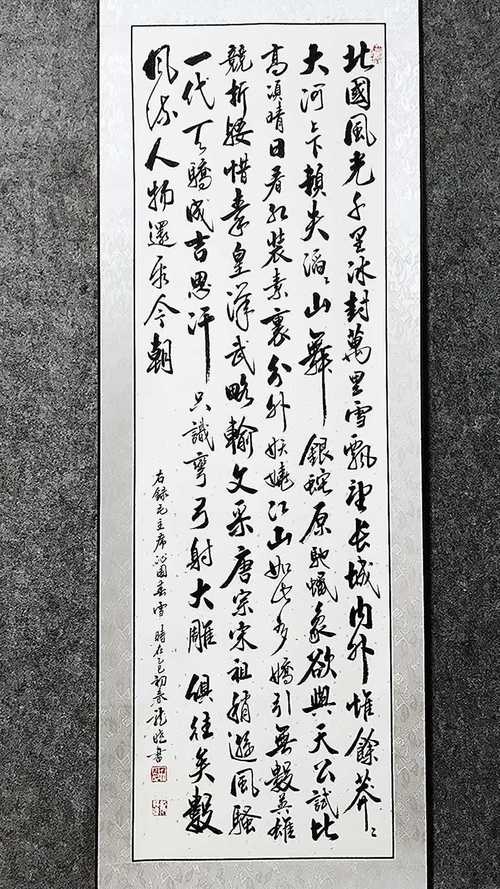 北國風光千里冰封萬里雪飄望长城内外惟餘莽〻
大河上下頓失滔〻山舞銀蛇原馳蠟象欲與天公試比
高須晴日看红装素裹分外妖嬈江山如此多嬌引無數英雄
競折腰惜秦皇漢武略輸文采唐宗宋祖稍遜風騷
一代天驕成吉思汗只識彎弓射大雕俱往矣數
風流人物還看今朝
右錄毛主席沁園春雪 時在乙巳初春書